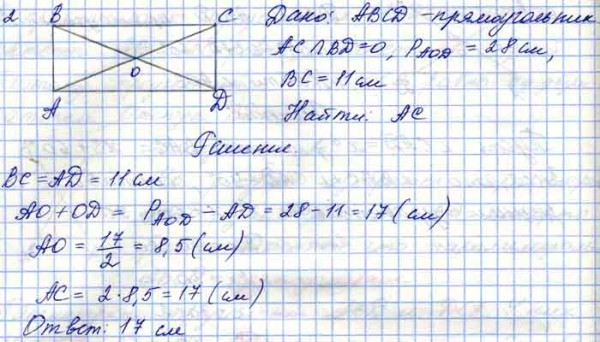 2 B C Дано: ABCD - прямоугольник
AC ∩ BD = O, P_AOD = 28 см,
O
BC = 11 см
A D
Найти: AC
Решение.
BC = AD = 11 см
AO + OD = P_AOD - AD = 28 - 11 = 17 (см)
AO = 17/2 = 8,5 (см)
AC = 2·8,5 = 17 (см)
Ответ: 17 см